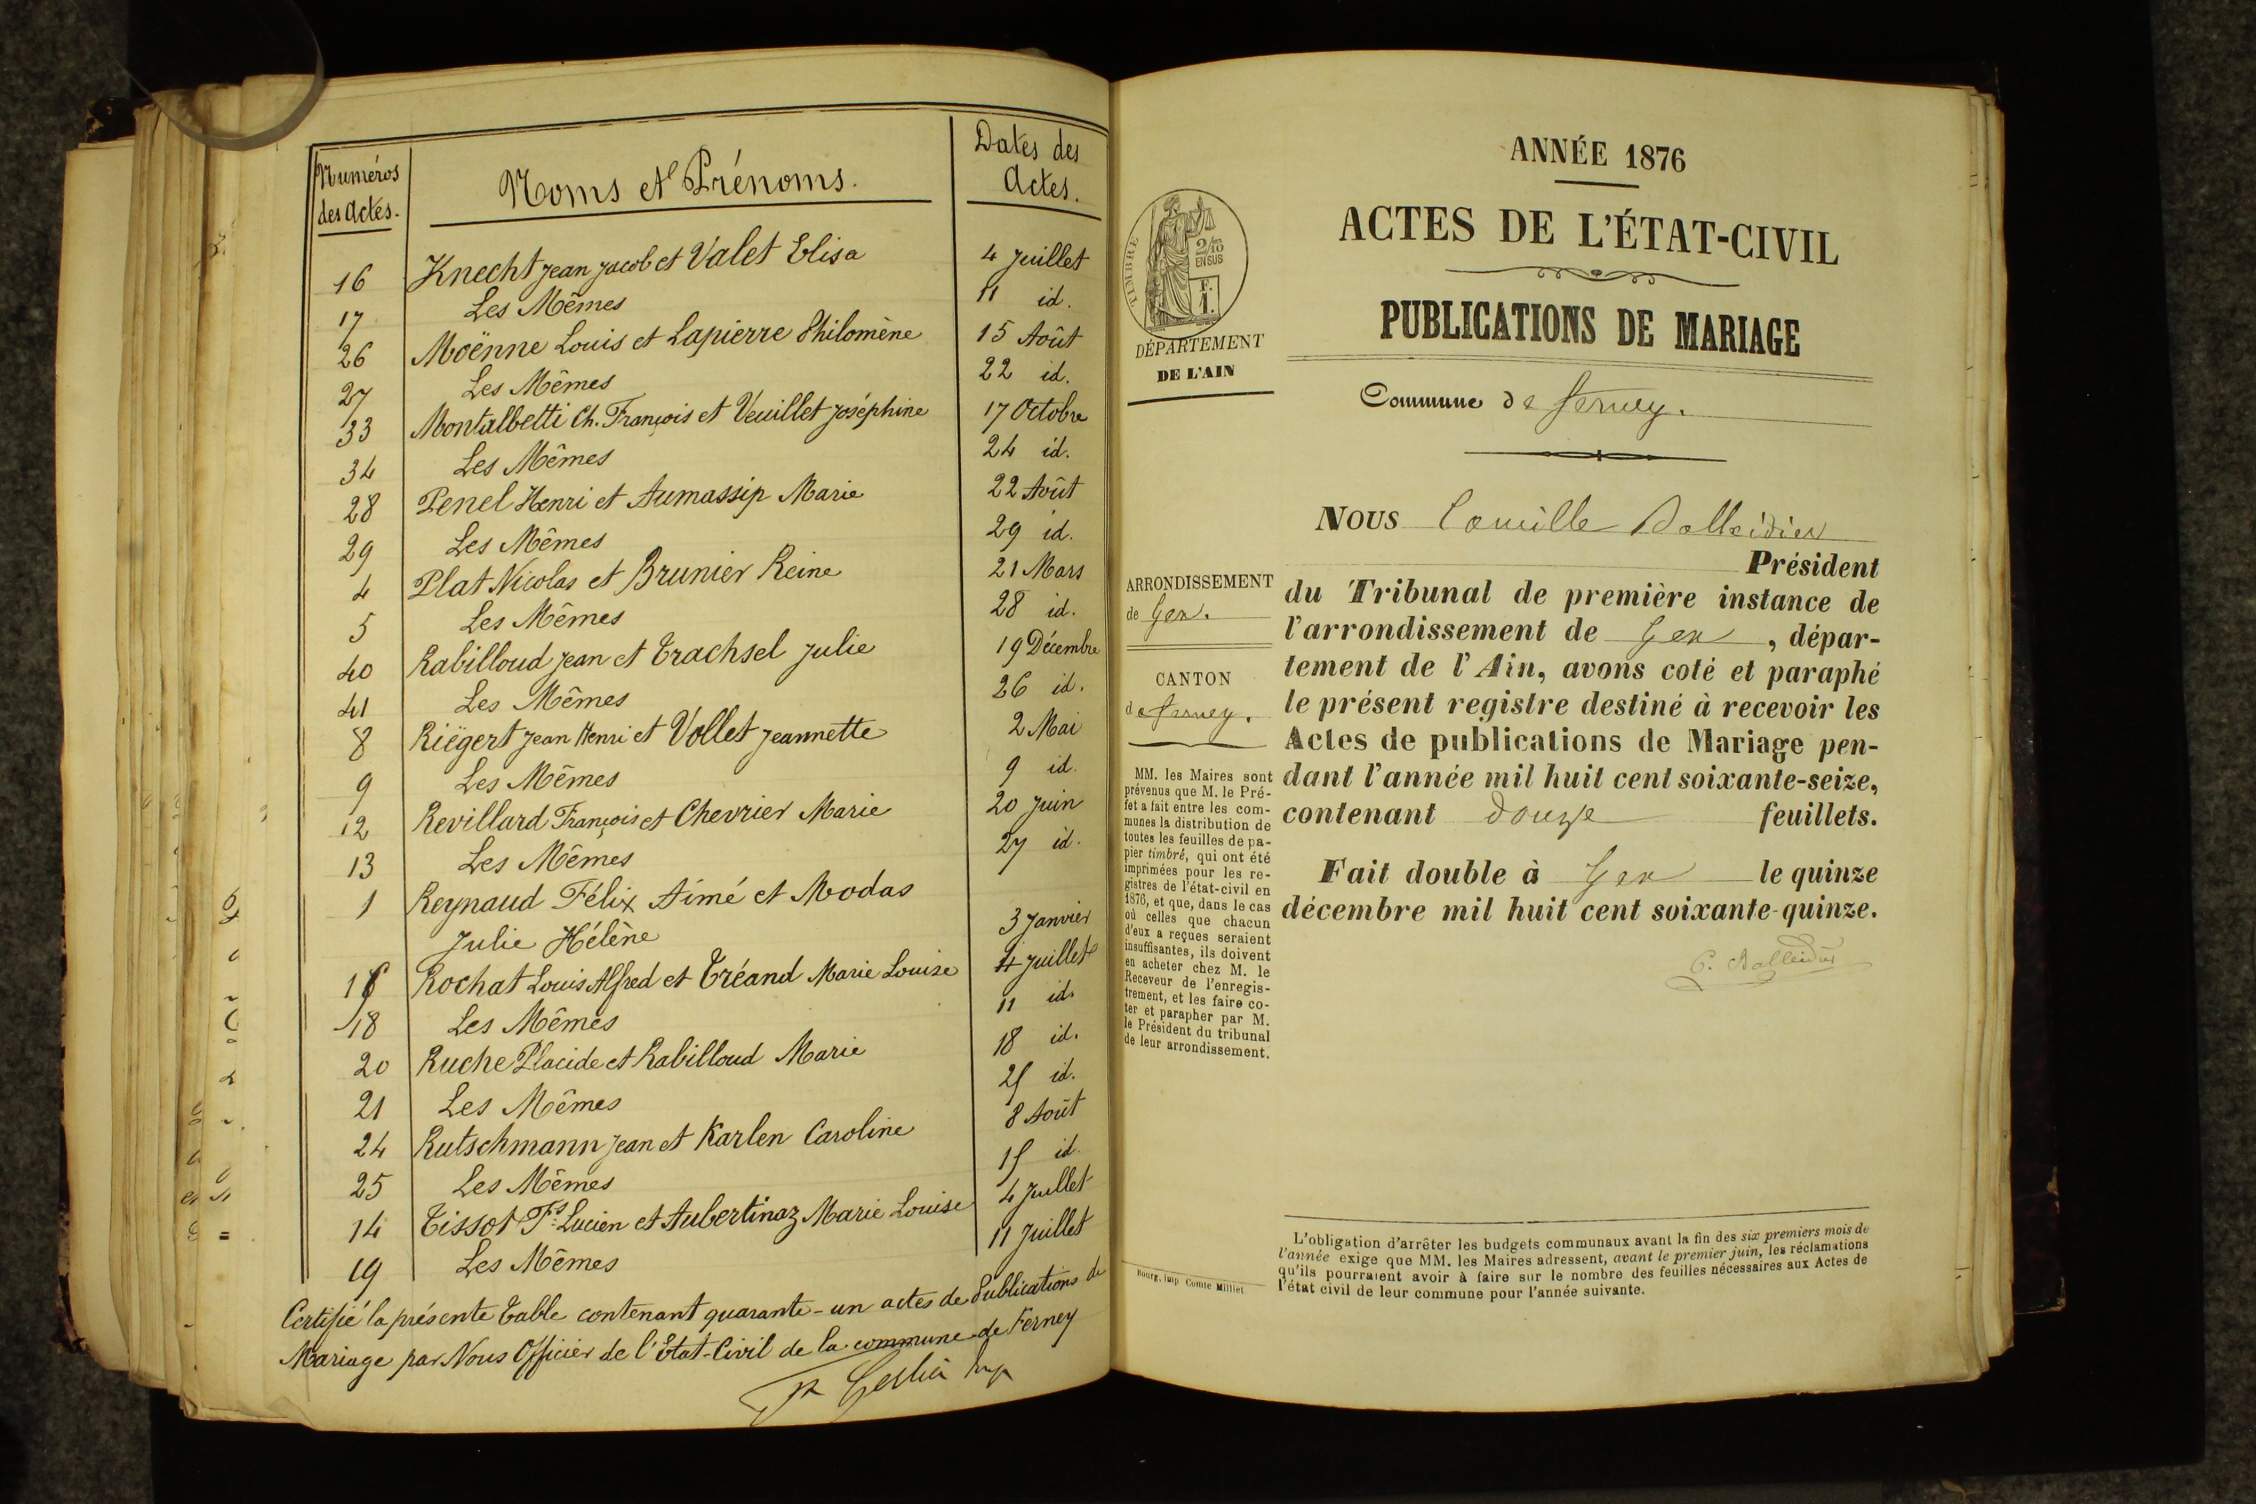 Numéros des Actes.
Noms et Prénoms.
Dates des Actes.
16 Knecht Jean Jacob et Valet Elisa 4 Juillet
17 Les Mêmes 11 id.
26 Moënne Louis et Lapierre Philomène 15 Août
27 Les Mêmes 22 id.
33 Montalbetti Ch. François et Veuillet Joséphine 17 Octobre
34 Les Mêmes 24 id.
28 Penel Henri et Aumassip Marie 22 Août
29 Les Mêmes 29 id.
4 Plat Nicolas et Brunier Reine 21 Mars
5 Les Mêmes 28 id.
40 Rabilloud Jean et Trachsel Julie 19 Décembre
41 Les Mêmes 26 id.
8 Riëgert Jean Henri et Vollet Jeannette 2 Mai
9 Les Mêmes 9 id.
12 Revillard François et Chevrier Marie 20 Juin
13 Les Mêmes 27 id.
1 Reynaud Félix Aimé et Modas
Julie Hélène 3 Janvier
Rochat Louis Alfred et Tréand Marie Louise 4 Juillet
18 Les Mêmes 11 id.
20 Ruche Placide et Rabilloud Marie 18 id.
21 Les Mêmes 25 id.
24 Rutschmann Jean et Karlen Caroline 8 Août
25 Les Mêmes 15 id.
14 Tissot Fs. Lucien et Aubertinaz Marie Louise 4 Juillet
19 Les Mêmes 11 Juillet
Certifié la présente Table contenant quarante-un actes de Publications de
Mariage par Nous Officier de l'Etat-Civil de la commune de Ferney
ANNÉE 1876
ACTES DE L'ÉTAT-CIVIL
PUBLICATIONS DE MARIAGE
TIMBRE
2/10
EN SUS
F.
1.
DÉPARTEMENT
DE L'AIN
Commune de Ferney.
ARRONDISSEMENT
de Gex.
CANTON
de Ferney.
MM. les Maires sont
prévenus que M. le Pré-
fet a fait entre les com-
munes la distribution de
toutes les feuilles de pa-
pier timbré, qui ont été
imprimées pour les re-
gistres de l'état-civil en
1876, et que, dans le cas
où celles que chacun
d'eux a reçues seraient
insuffisantes, ils doivent
en acheter chez M. le
Receveur de l'enregis-
trement, et les faire co-
ter et parapher par M.
le Président du tribunal
de leur arrondissement.
Bourg, imp Comte Milliet
NOUS Camille Balleidier
Président
du Tribunal de première instance de
l'arrondissement de Gex, dépar-
tement de l'Ain, avons coté et paraphé
le présent registre destiné à recevoir les
Actes de publications de Mariage pen-
dant l'année mil huit cent soixante-seize,
contenant douze feuillets.
Fait double à Gex le quinze
décembre mil huit cent soixante-quinze.
C. Balleidier
L'obligation d'arrêter les budgets communaux avant la fin des six premiers mois de
l'année exige que MM. les Maires adressent, avant le premier juin, les réclamations
qu'ils pourraient avoir à faire sur le nombre des feuilles nécessaires aux Actes de
l'état civil de leur commune pour l'année suivante.